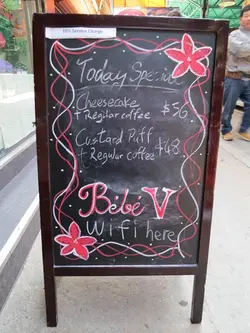 10% Service Charge
Today Special
Cheesecake
+ Regular coffee $56
Custard Puff
+ Regular coffee $48
Bébé V
Wifi here